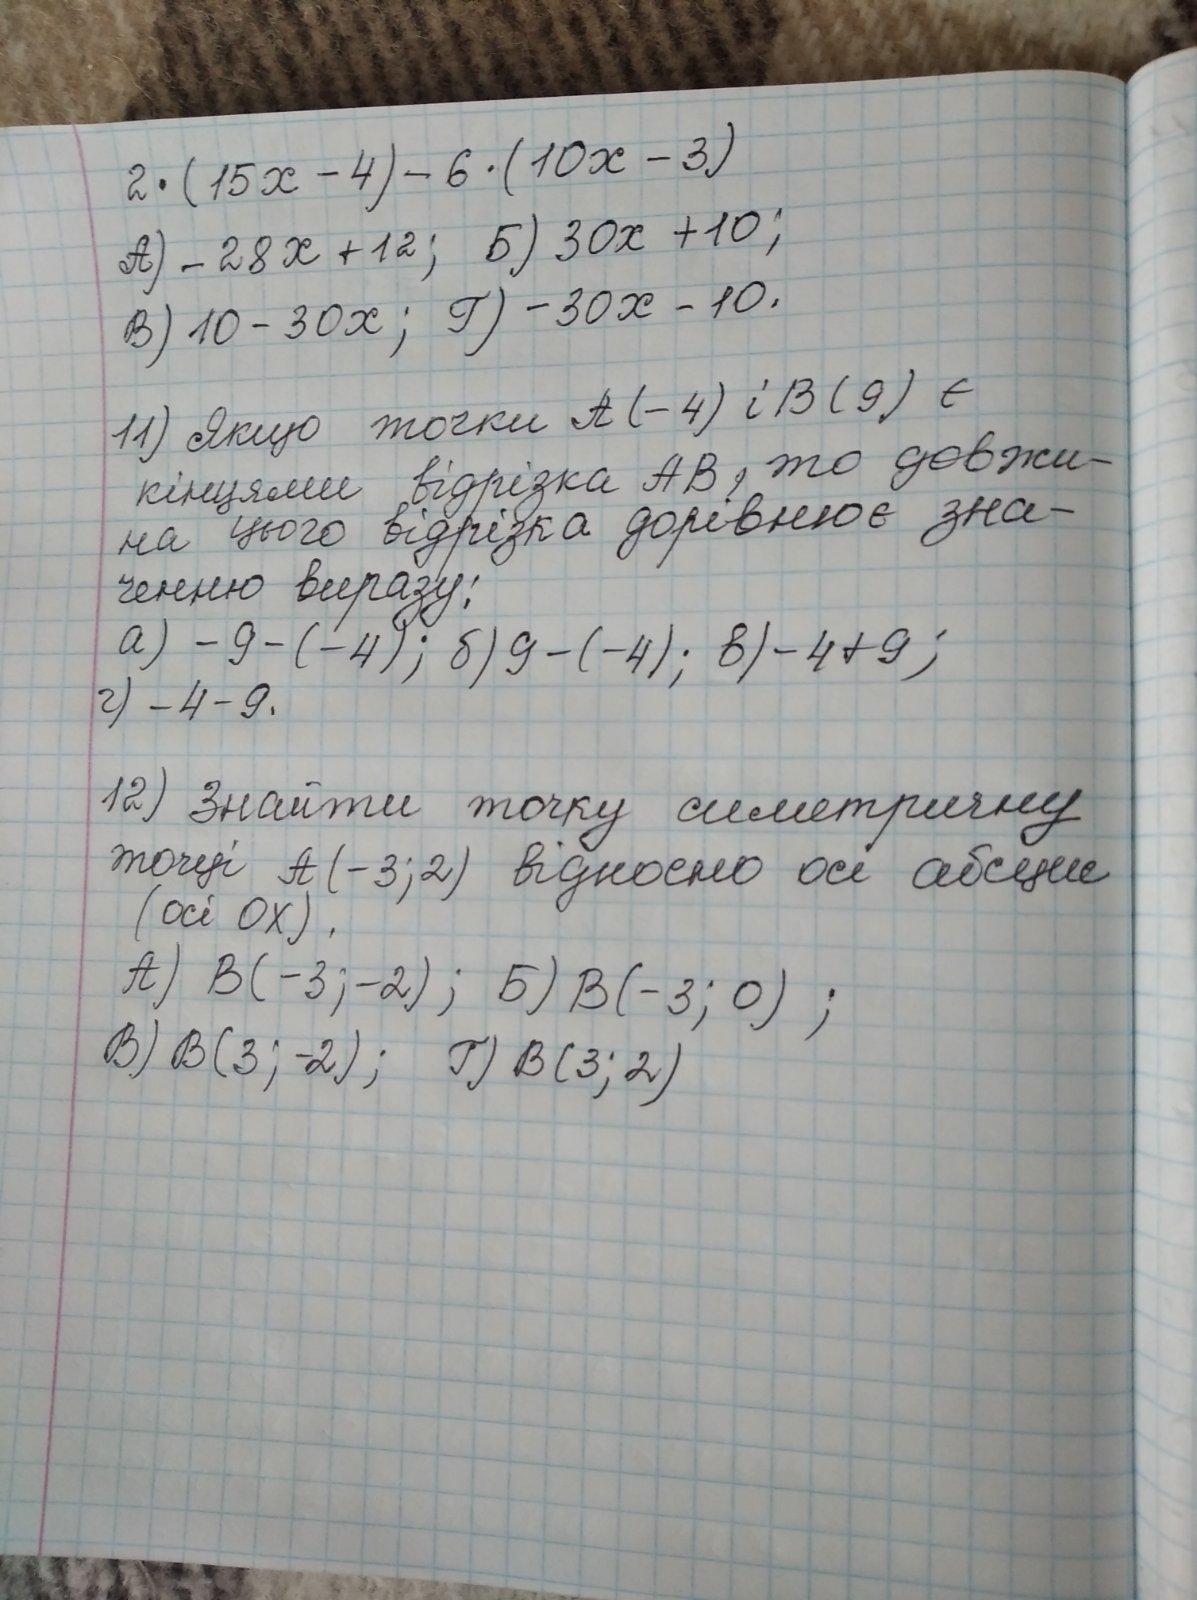 2·(15x-4)-6·(10x-3)
А) -28x+12; Б) 30x+10;
В) 10-30x; Г) -30x-10.
11) Якщо точки А(-4) і В(9) є
кінцями відрізка АВ, то довжи-
на цього відрізка дорівнює зна-
ченню виразу:
а) -9-(-4); б) 9-(-4); в) -4+9;
г) -4-9.
12) Знайти точку симетричну
точці А(-3;2) відносно осі абсцис
(осі ОХ).
А) В(-3;-2); Б) В(-3;0);
В) В(3;-2); Г) В(3;2)